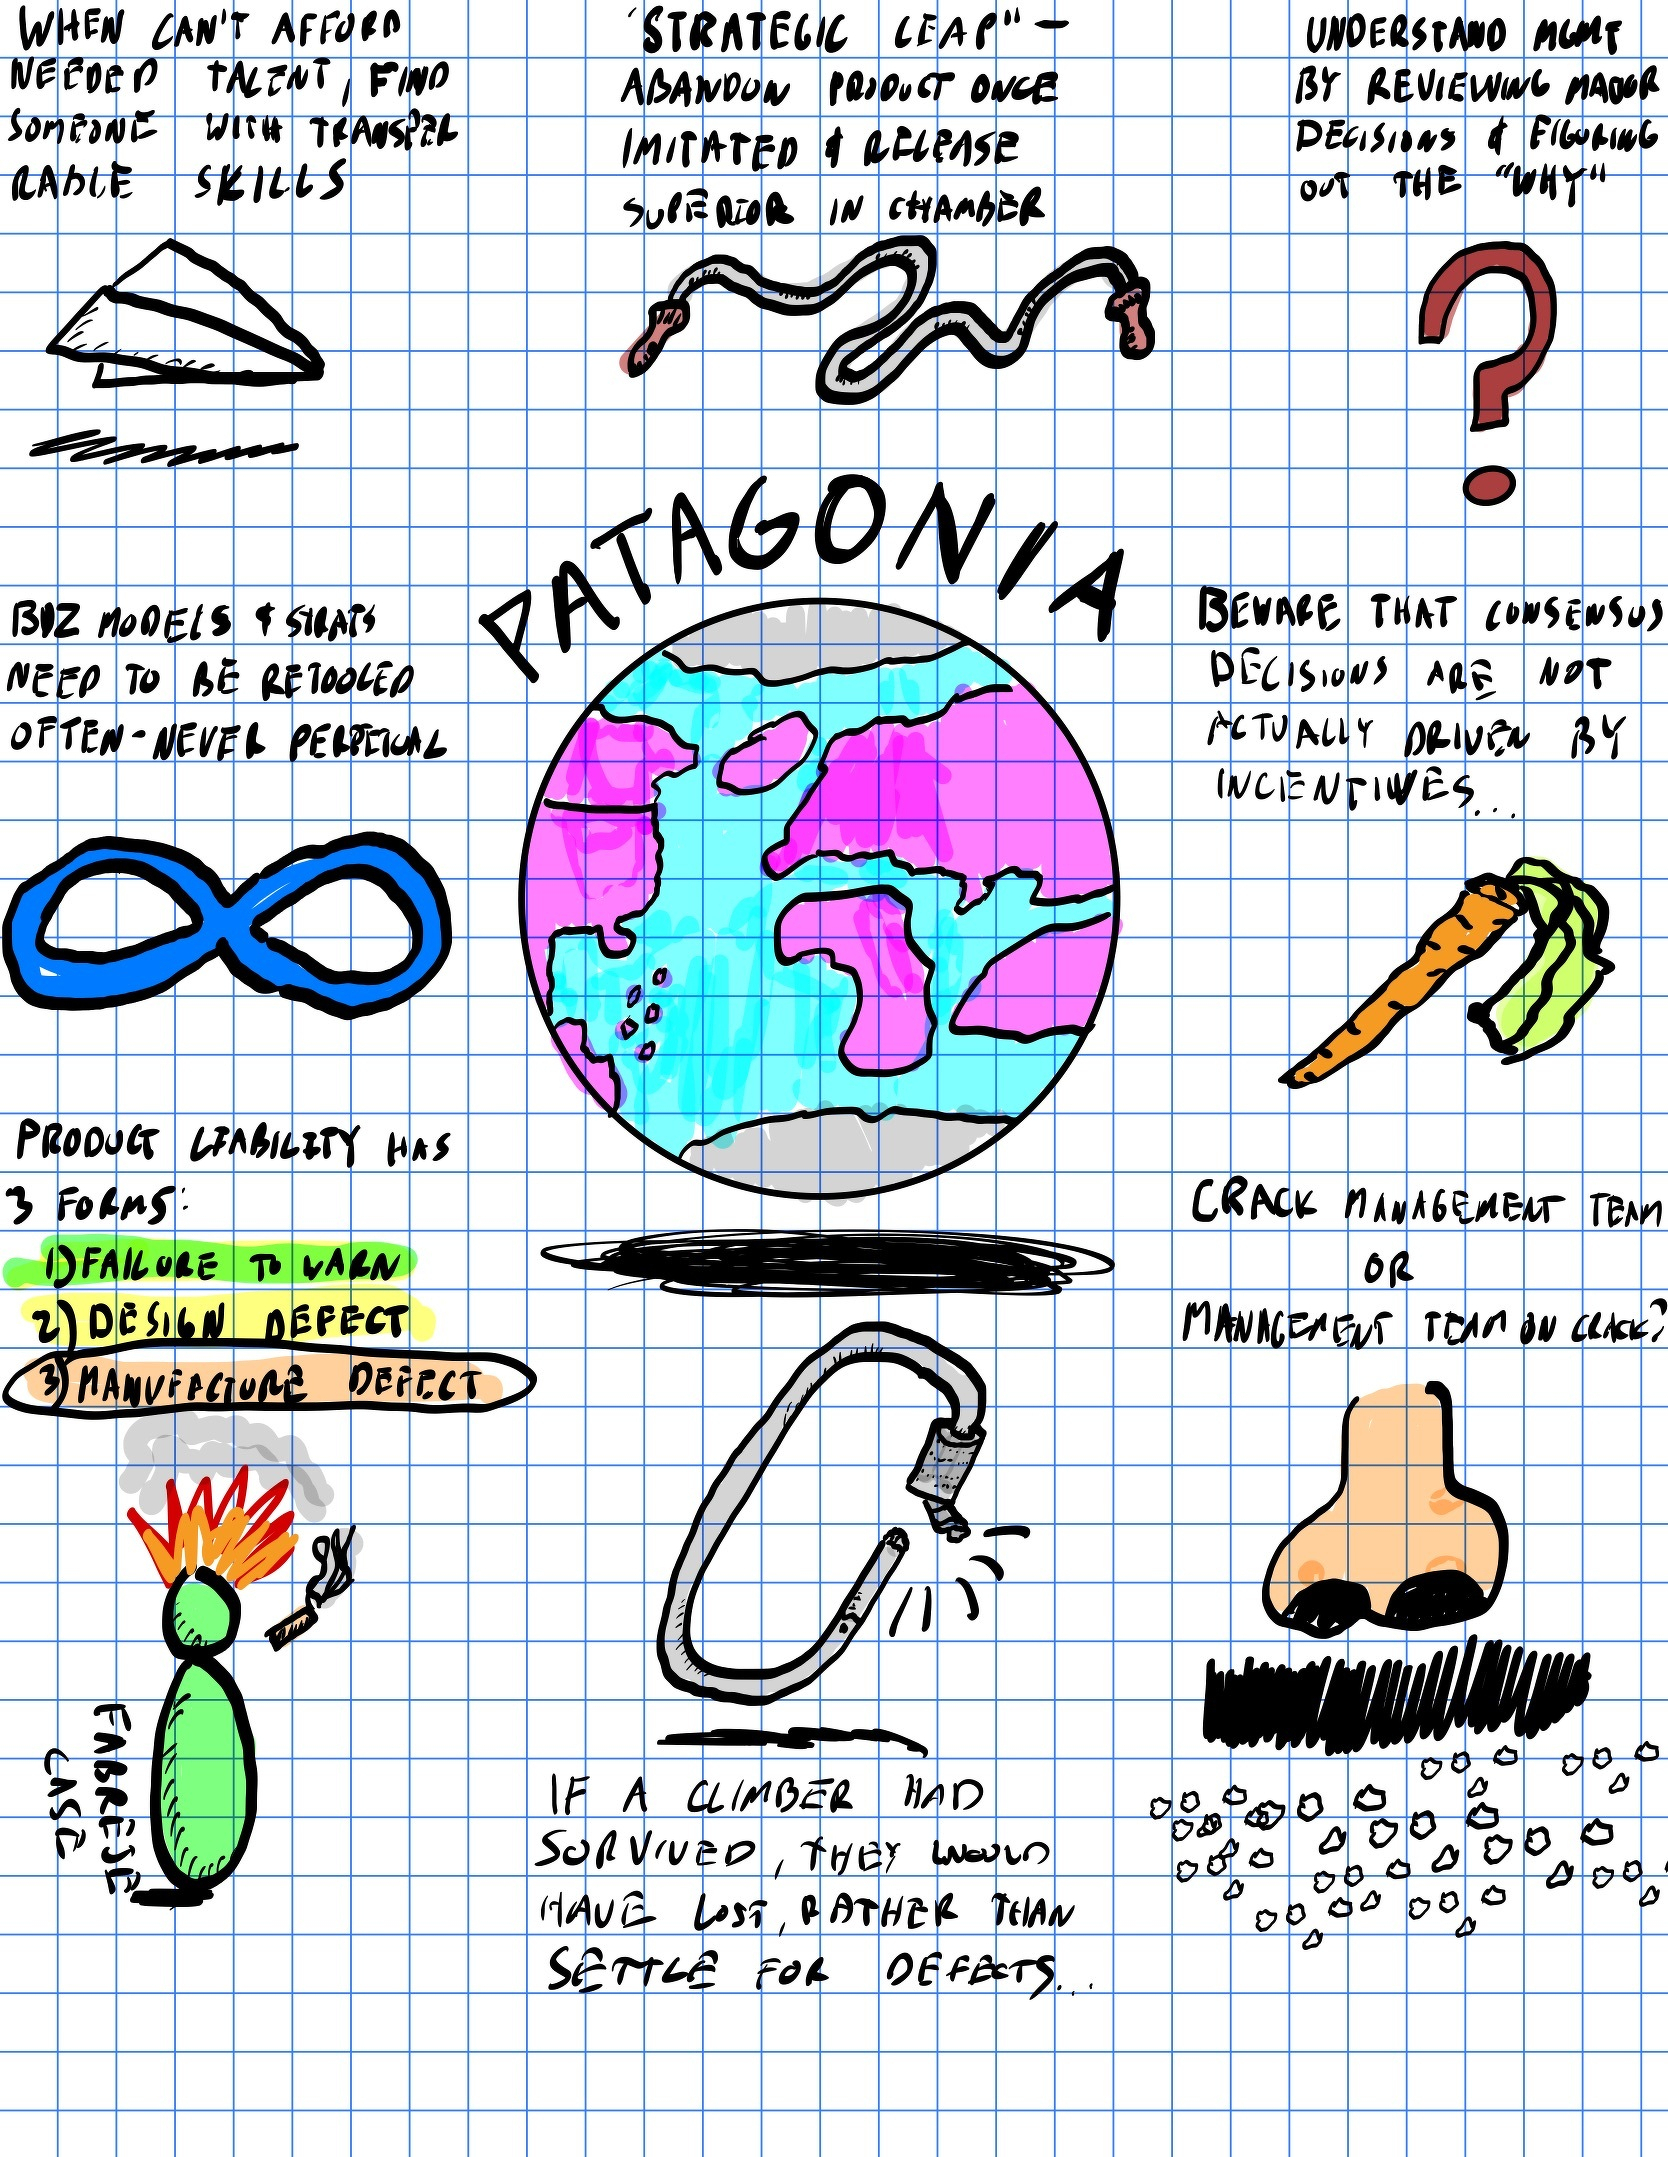 WHEN CAN'T AFFORD
NEEDED TALENT, FIND
SOMEONE WITH TRANSFER
RABLE SKILLS
"STRATEGIC LEAP" -
ABANDON PRODUCT ONCE
IMITATED & RELEASE
SUPERIOR IN CHAMBER
UNDERSTAND MGMT
BY REVIEWING MAJOR
DECISIONS & FIGURING
OUT THE "WHY"
PATAGONIA
BIZ MODELS & STRATS
NEED TO BE RETOOLED
OFTEN-NEVER PERPETUAL
BEWARE THAT CONSENSUS
DECISIONS ARE NOT
ACTUALLY DRIVEN BY
INCENTIVES...
PRODUCT LIABILITY HAS
3 FORMS:
1) FAILURE TO WARN
2) DESIGN DEFECT
3) MANUFACTURE DEFECT
CRACK MANAGEMENT TEAM
OR
MANAGEMENT TEAM ON CRACK?
CASE
IF A CLIMBER HAD
SURVIVED, THEY WOULD
HAVE LOST, RATHER THAN
SETTLE FOR DEFECTS...